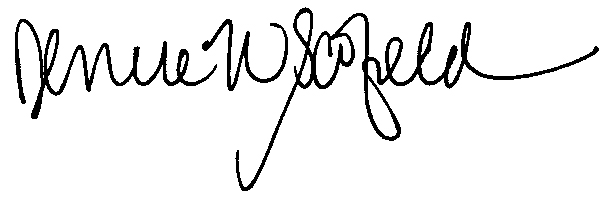 Dennie W Scofield